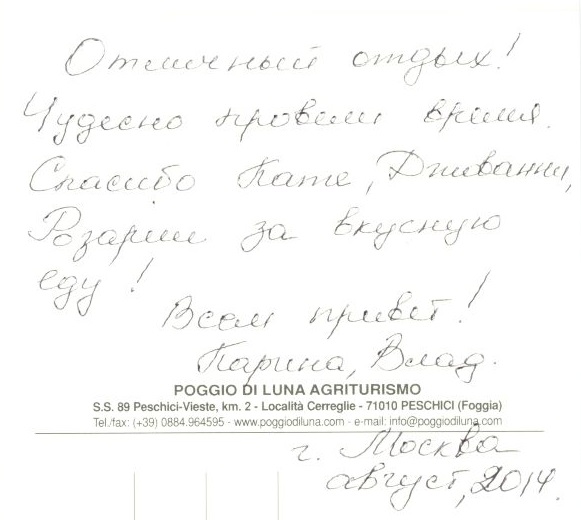 Отличный отдых!
Чудесно провели время.
Спасибо Кате, Дживанни,
Розарии за вкусную
еду!
Всем привет!
Карина, Влад.
POGGIO DI LUNA AGRITURISMO
S.S. 89 Peschici-Vieste, km. 2 - Località Cerreglie - 71010 PESCHICI (Foggia)
Tel./fax: (+39) 0884.964595 - www.poggiodiluna.com - e-mail: info@poggiodiluna.com
г. Москва
август, 2014.